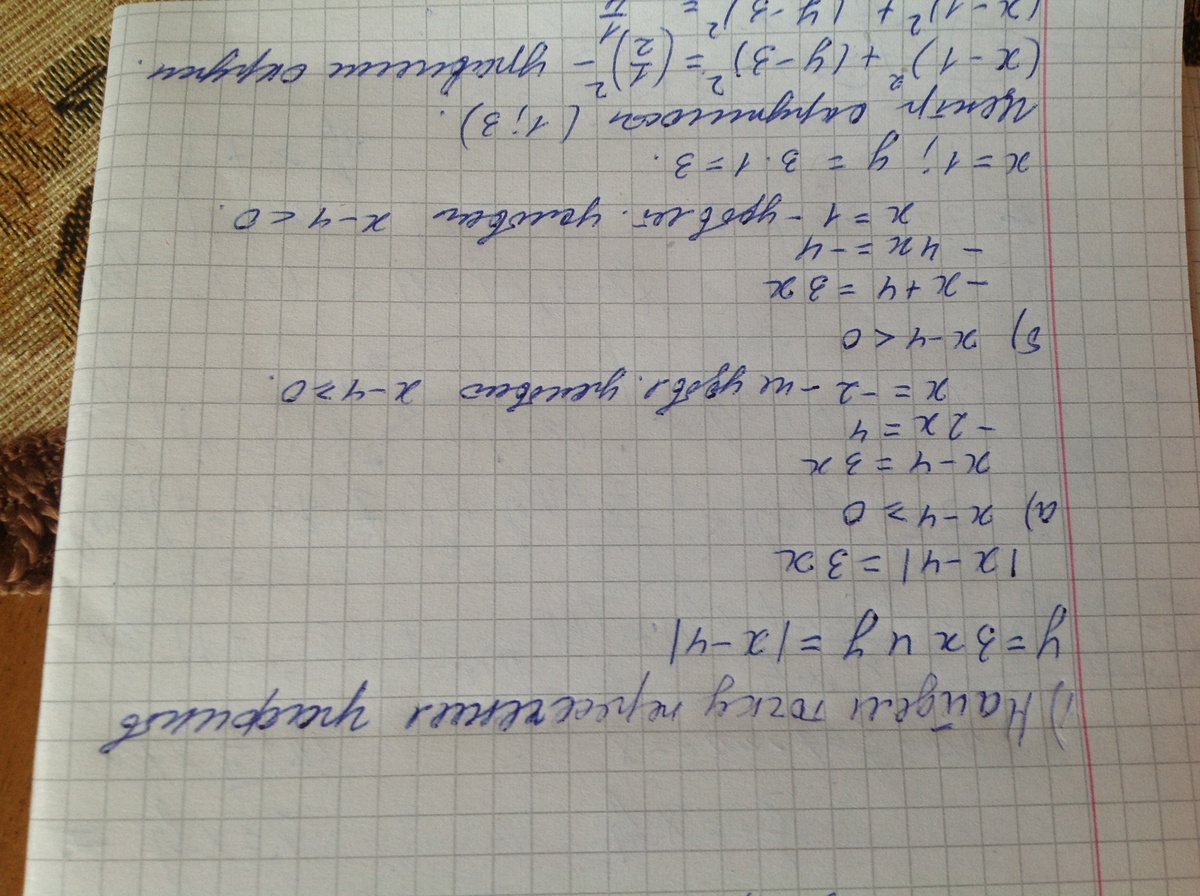 1) Найдём точку пересечения графиков
y = 3x и y = |x-4|
|x-4| = 3x
а) x-4 ≥ 0
x-4 = 3x
-2x = 4
x = -2 - не удовл. условию x-4 ≥ 0.
б) x-4 < 0
-x+4 = 3x
-4x = -4
x = 1 - удовлет. условию x-4 < 0.
x = 1; y = 3·1 = 3.
Центр окружности (1; 3).
(x-1)² + (y-3)² = (1/2)² - уравнение окружн.
(x-1)² + (y-3)² = 1/4